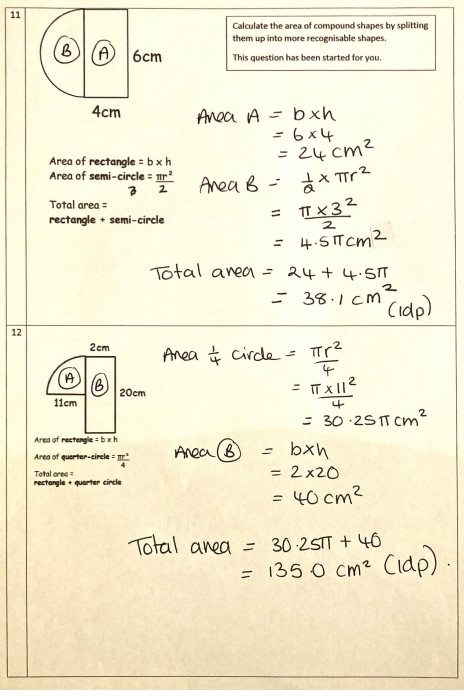 11
Calculate the area of compound shapes by splitting
them up into more recognisable shapes.
This question has been started for you.
B
A
6cm
4cm
Area A = b x h
= 6 x 4
= 24 cm²
Area of rectangle = b x h
Area of semi-circle = πr²/2
3
Total area =
rectangle + semi-circle
Area B = 1/2 x πr²
= π x 3²/2
= 4.5π cm²
Total area = 24 + 4.5π
= 38.1 cm² (1dp)
12
2cm
A
B
20cm
11cm
Area of rectangle = b x h
Area of quarter-circle = πr²/4
Total area =
rectangle + quarter circle
Area 1/4 circle = πr²/4
= π x 11²/4
= 30.25π cm²
Area B = b x h
= 2 x 20
= 40 cm²
Total area = 30.25π + 40
= 135.0 cm² (1dp).